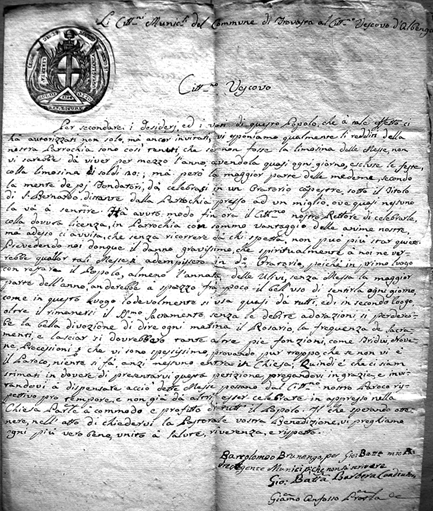 Li Citt.ni Munic.li del Comune di Trovasta al Citt.no Vescovo d'Albenga
Citt.no Vescovo
Per secondare i desiderj, ed i voti di questo Popolo, che a tale effetto ci
ha autorizzati non solo, ma ancor invitati, vi esponiamo qualmente li redditi della
nostra Parrochia sono così tenui che se non fosse la limosina delle Messe, non
vi sarebbe da viver per mezzo l'anno, avendola quasi ogni giorno, escluse le feste,
colla limosina di soldi 20:; ma però la maggior parte delle medeme, secondo
la mente de pii Fondatori, dà celebrarsi in un Oratorio campestre, sotto il Titolo
di S. Bernardo, distante dalla Parrochia presso ad un miglio, ove quasi nessuno
và à sentirle. Ha avuto modo fin ora il Citt.no nostro Rettore di celebrarle,
colla dovuta licenza, in Parrochia con sommo vantaggio delle anime nostre,
mà adesso ci avvisa che senza ricorrere dà chi spetta non può più star quieto.
Prevedendo noi dunque il danno gravissimo che spiritualmente a noi ne ver-
rebbe qualor tali Messe si adempissero in d.o Oratorio, stoiché in primo luogo
con restare il Popolo, almeno l'annata delle Ulive, senza Messa la maggior
parte dell'anno, anderebbe à spasso frà poco il bell'uso di sentirla ogni giorno,
come in questo luogo lodevolmente si usa quasi dà tutti, ed in secondo luogo
oltre il rimanersi il S.mo Sacramento senza le debite adorazioni si perdereb-
be la bella divozione di dire ogni matina il Rosario, la frequenza de Sacra-
menti, e lasciar si dovrebbero tante altre pie fonzioni, come Tridui, Nove-
ne, Processioni, che vi sono spessissimo, provando pur troppo, che se non vi è
il Paroco, niente si fà, anzi nessuno entra in Chiesa. Quindi è che ci siam
stimati in dovere di presentarvi questa petizione, pregandovi in grazia, e invi-
tandovi à dispensare acciò dette Messe possano dal Citt.no nostro Paroco ris-
pettivo pro tempore, e non già dà altri esser celebrate in appresso nella
Chiesa Parl.e à commodo e profitto di tutti il Popolo. Il che sperando otte-
nere, nell'atto di chiedervi la Pastorale vostra Benedizione, vi preghiamo
ogni più vero bene, unito à salute, riverenza, e rispetto.
Bartolomeo Brunengo per Gio: Batt.a mio Pa-
dre Agente Municip.e che non sà scrivere
Gio: Batta Barbera
Giacomo